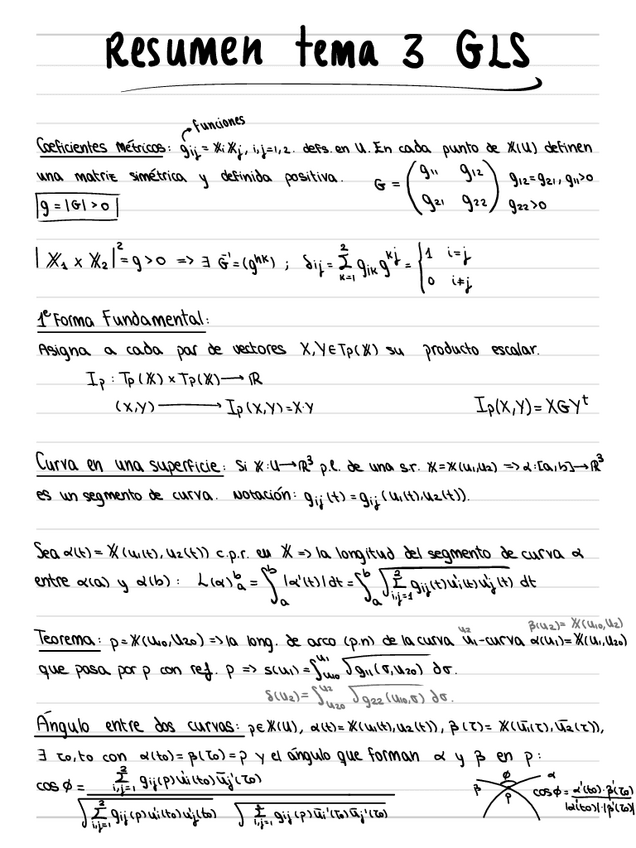 Resumen tema 3 GLS
funciones
Coeficientes Métricos: g_ij = 𝕏_i 𝕏_j, i,j=1,2. defs. en U. En cada punto de 𝕏(U) definen
una matriz simétrica y definida positiva. G = (g_11 g_12 / g_21 g_22) g_12=g_21, g_11>0
g=|G|>0 g_22>0
|𝕏_1 x 𝕏_2|^2 = g>0 => ∃ G^-1=(g^hk) ; δ_ij = Σ_{k=1}^{2} g_ik g^kj = {1 i=j
0 i≠j
1ª Forma Fundamental:
Asigna a cada par de vectores X,Y∈Tp(𝕏) su producto escalar.
I_p : Tp(𝕏) x Tp(𝕏) → ℝ
(X,Y) → I_p(X,Y)=X·Y I_p(X,Y)=XGY^t
Curva en una superficie: Si 𝕏:U→ℝ^3 p.l. de una s.r. 𝕏=𝕏(u_1,u_2) => α:[a,b]→ℝ^3
es un segmento de curva. Notación: g_ij(t)=g_ij(u_1(t),u_2(t)).
Sea α(t)=𝕏(u_1(t),u_2(t)) c.p.r. en 𝕏 => la longitud del segmento de curva α
entre α(a) y α(b): L(α)_a^b = ∫_a^b |α'(t)|dt = ∫_a^b √(Σ_{i,j=1}^{2} g_ij(t)u_i'(t)u_j'(t)) dt
u_2 β(u_2)=𝕏(u_10,u_2)
Teorema: p=𝕏(u_10,u_20) => la long. de arco (p.n) de la curva u_1-curva α(u_1)=𝕏(u_1,u_20)
que pasa por p con ref. p => s(u_1)=∫_{u_10}^{u_1} √(g_11(σ,u_20)) dσ.
s(u_2)=∫_{u_20}^{u_2} √(g_22(u_10,σ)) dσ.
Ángulo entre dos curvas: p∈𝕏(U), α(t)=𝕏(u_1(t),u_2(t)), β(τ)=𝕏(ū_1(τ),ū_2(τ)),
∃ τ_0,t_0 con α(t_0)=β(τ_0)=p y el ángulo que forman α y β en p:
cos ϕ = Σ_{i,j=1}^{2} g_ij(p)u_i'(t_0)ū_j'(τ_0) / √(Σ_{i,j=1}^{2} g_ij(p)u_i'(t_0)u_j'(t_0)) √(Σ_{i,j=1}^{2} g_ij(p)ū_i'(τ_0)ū_j'(τ_0))
β ϕ α p cosϕ = α'(t_0)·β'(τ_0) / |α'(t_0)|·|β'(τ_0)|